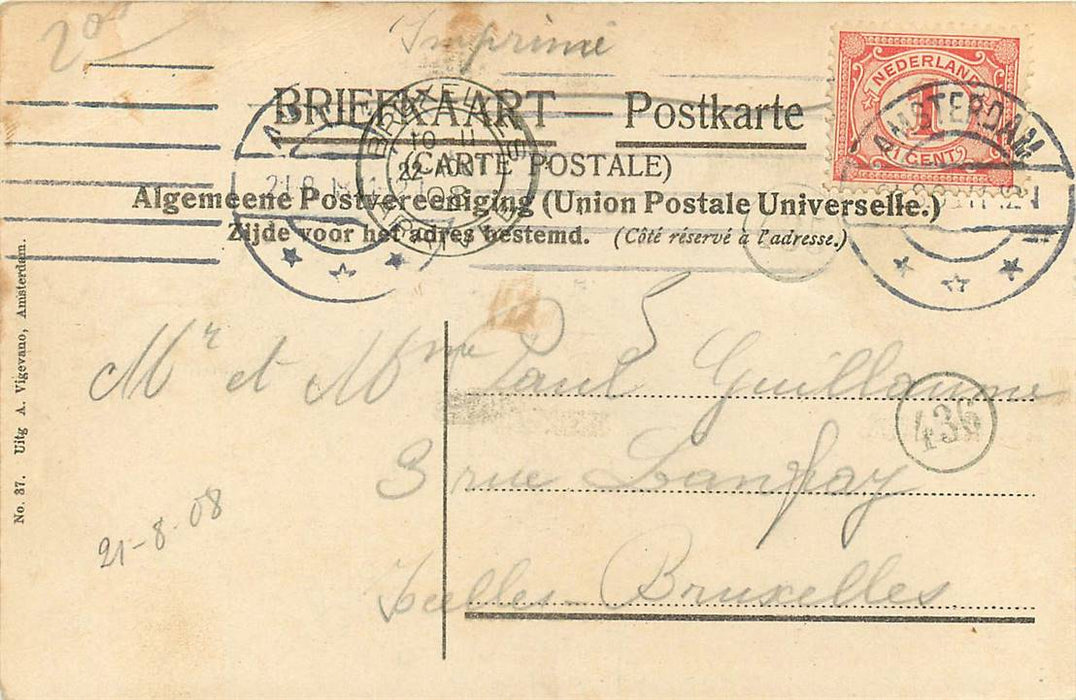 20
Imprimé
BRIEFKAART — Postkarte
(CARTE POSTALE)
Algemeene Postvereeniging (Union Postale Universelle.)
Zijde voor het adres bestemd. (Côté réservé à l'adresse.)
NEDERLAND
1
1 CENT
AMSTERDAM
BRUXELLES
10-11
22
08
5
Mr et Mme Paul Guillaume
3 rue Lanfray
Ixelles-Bruxelles
436
21-8-08
No. 37. Uitg A. Vigevano, Amsterdam.